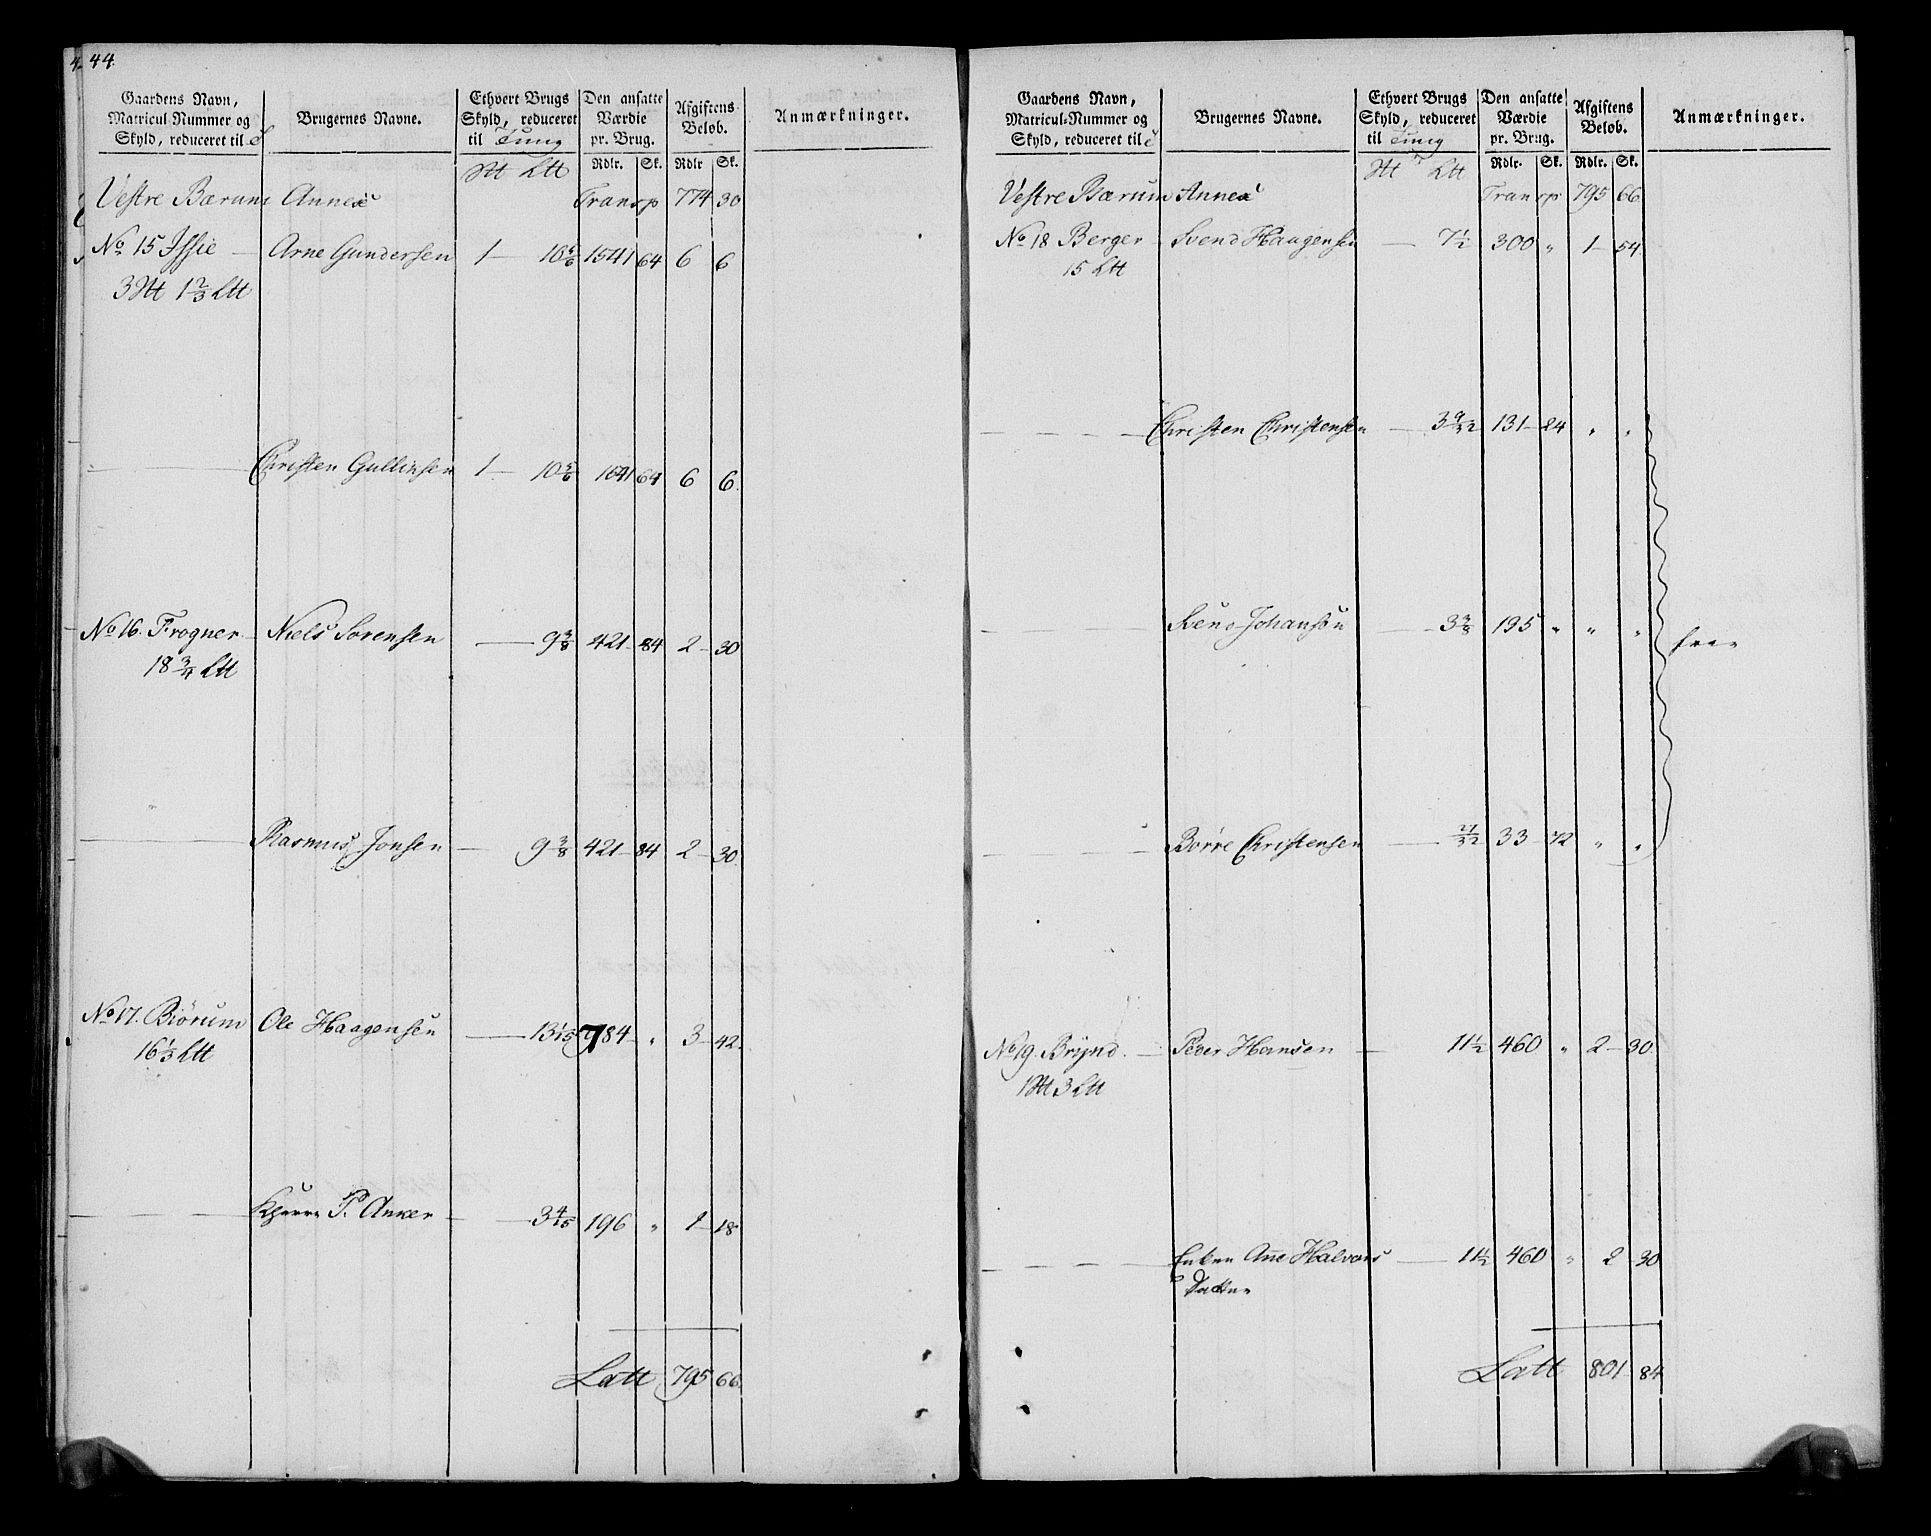 44.
Gaardens Navn, Matricul-Nummer og Skyld, reduceret til
Brugernes Navne.
Ethvert Brugs Skyld, reduceret til Tung
Den ansatte Værdie pr. Brug.
Afgiftens Beløb.
Anmærkninger.
Rdlr. Sk. Rdlr Sk.
Vestre Bærum Annex Transp 774 30
No 15 Issie Arne Gundersen 1 10 5/6 1541 64 6 6
3 1 2/3 Ltt
Christen Gullichsen 1 10 5/6 1541 64 6 6.
No 16. Frogner Niels Sørensen 9 3/8 421 84 2 30
18 3/4 Ltt
Rasmus Jonsen 9 3/8 421 84 2 30.
No 17. Biørum Ole Haagensen 13 1/15 784 " 3 42.
16 1/3 Ltt
P. Anker 3 4/15 196 " 1 18
Latt 795 66.
Gaardens Navn, Matricul-Nummer og Skyld, reduceret til
Brugernes Navne.
Ethvert Brugs Skyld, reduceret til Tung
Den ansatte Værdie pr. Brug.
Afgiftens Beløb.
Anmærkninger.
Rdlr. Sk. Rdlr. Sk.
Vestre Bærum Annex Transp 795 66.
No 18 Berger Svend Haagensen 7 1/2 300 " 1 54.
15 Ltt
Christen Christensen 3 9/32 131 24 " "
Svend Johansen 3 3/8 135 " " "
Børre Christensen 27/32 33 72 " "
No 19. Brynd. Peder Hansen 11 1/2 460 " 2 30.
1 3 Ltt
Enken Ane Halvors 11 1/2 460 " 2 30
Datter
Latt 801 84